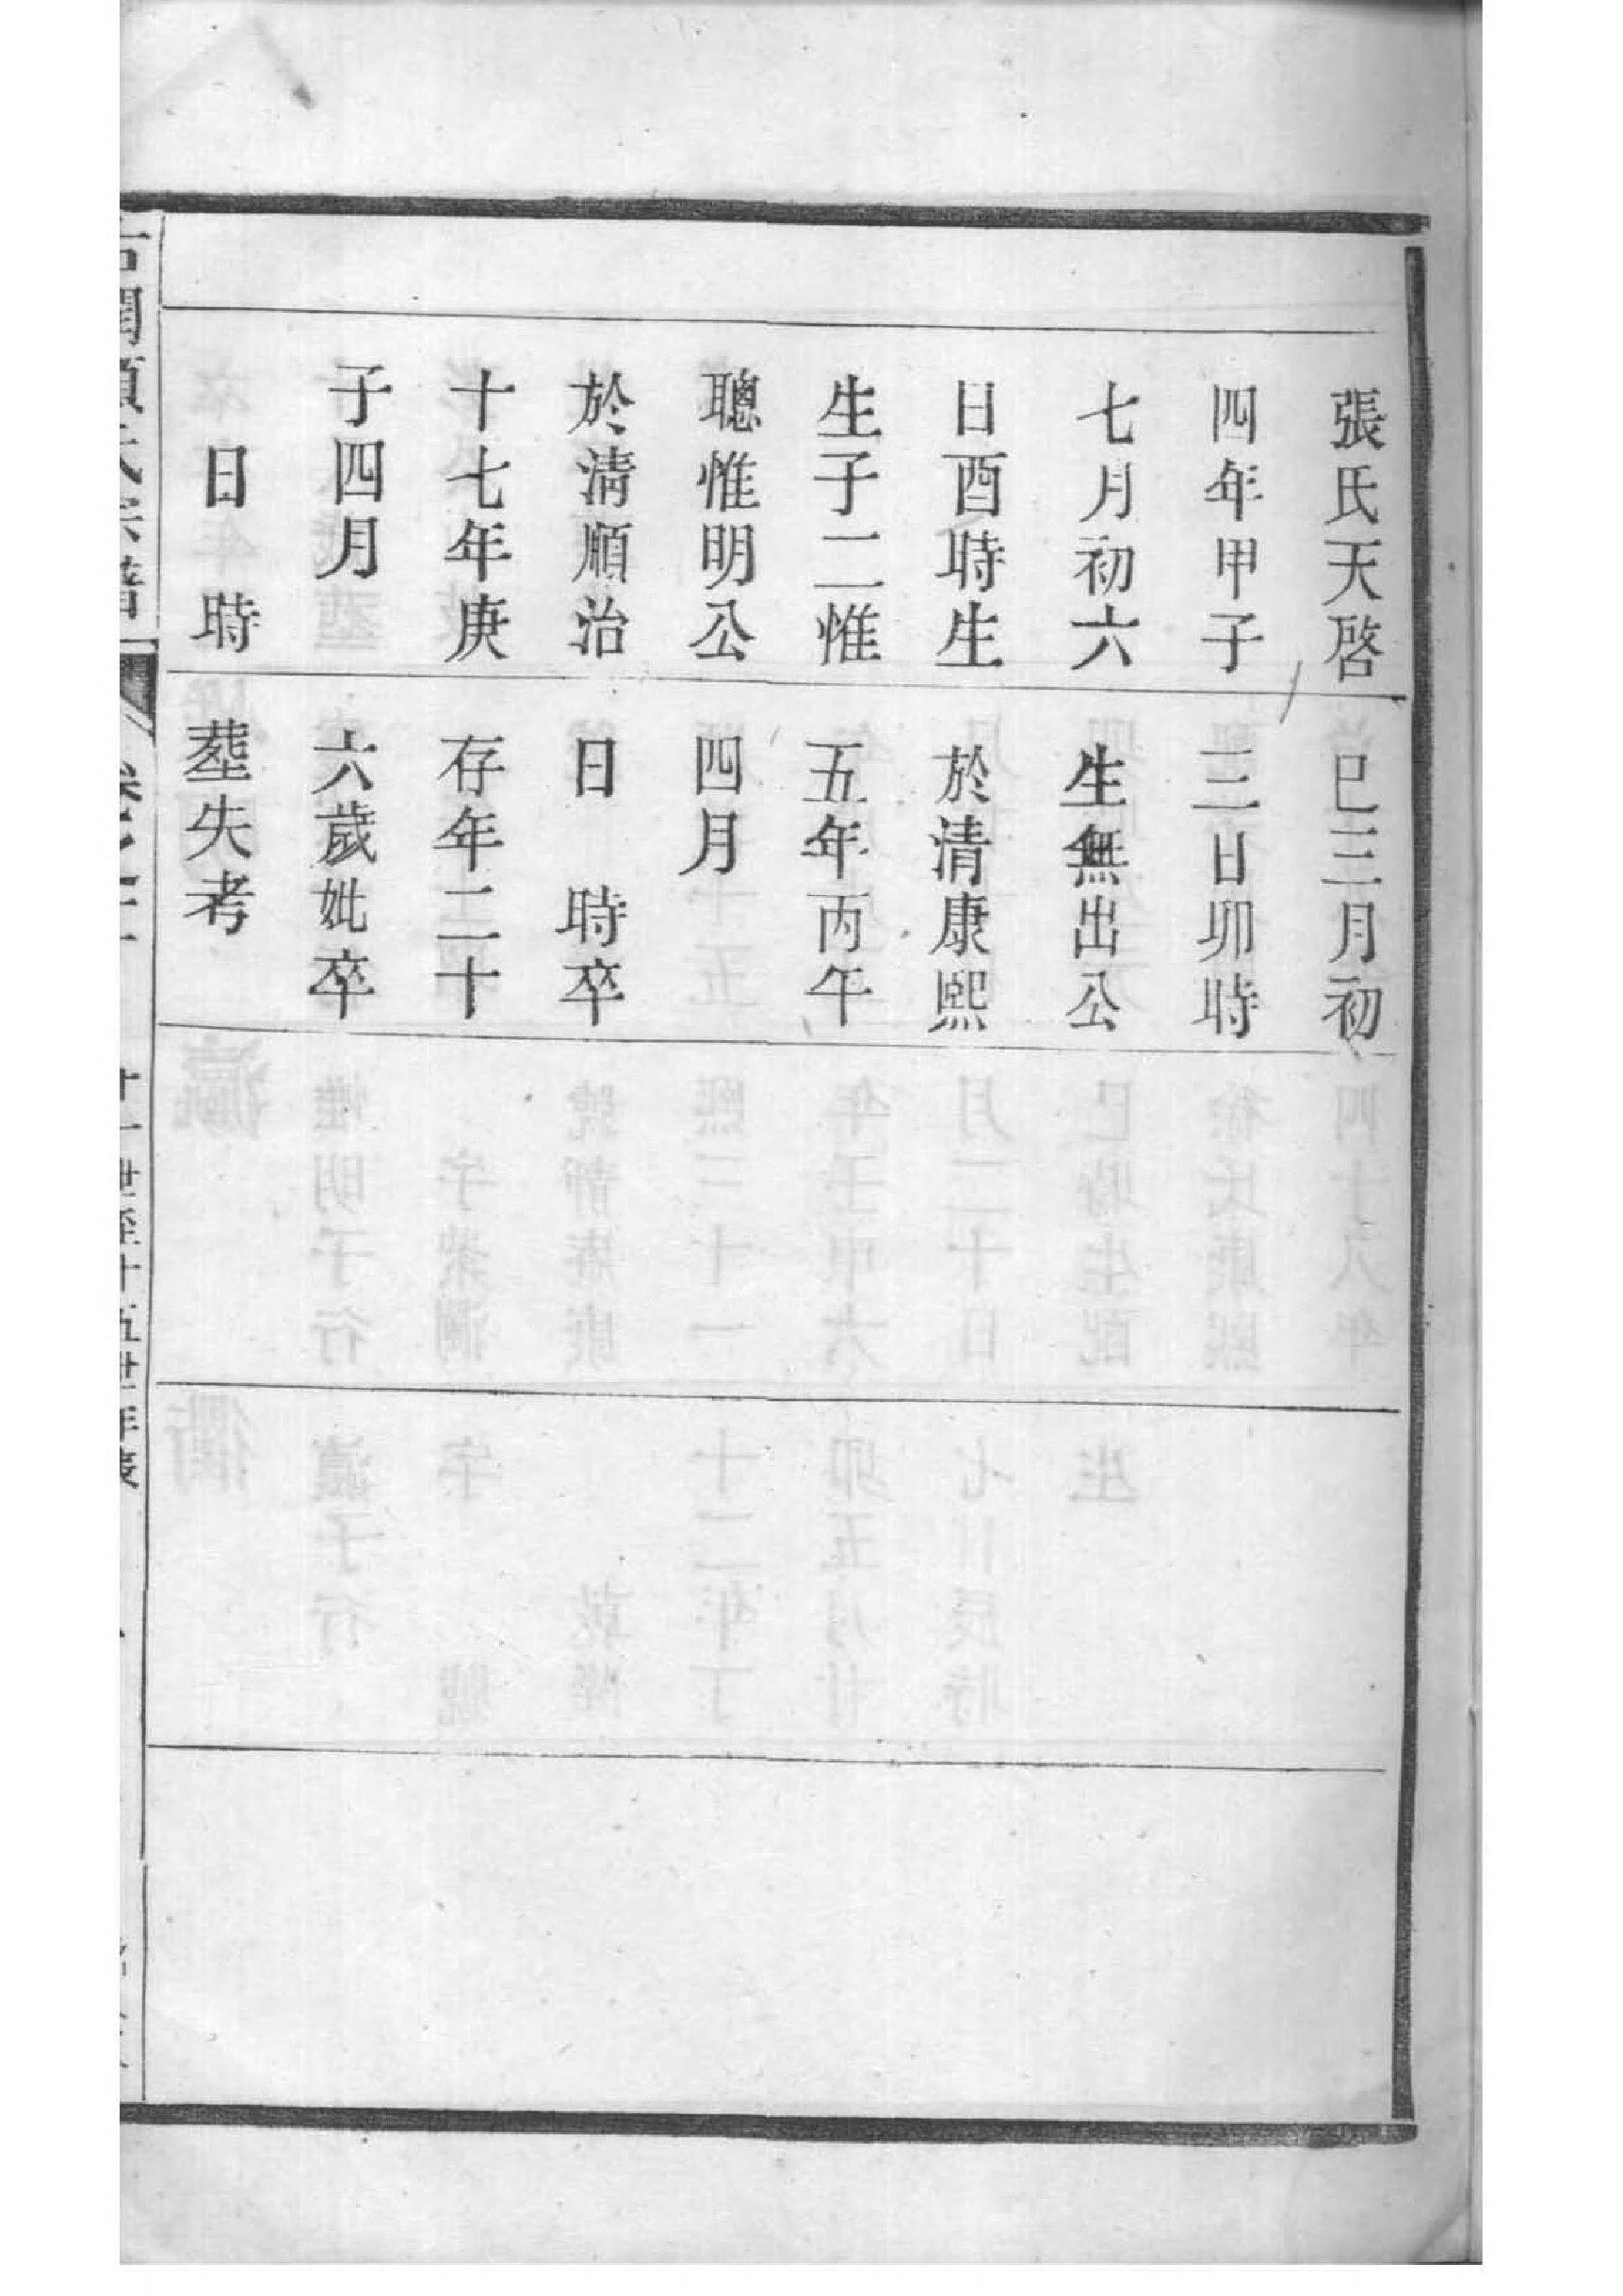 張氏天啓
四年甲子
七月初六
日酉時生
生子二惟
聰惟明公
於淸順治
十七年庚
子四月
日　時
巳三月初
三日卯時
生無出公
於清康熙
五年丙午
四月
日　時卒
存年二十
六歲妣卒
塟失考
十一世至十五世年表